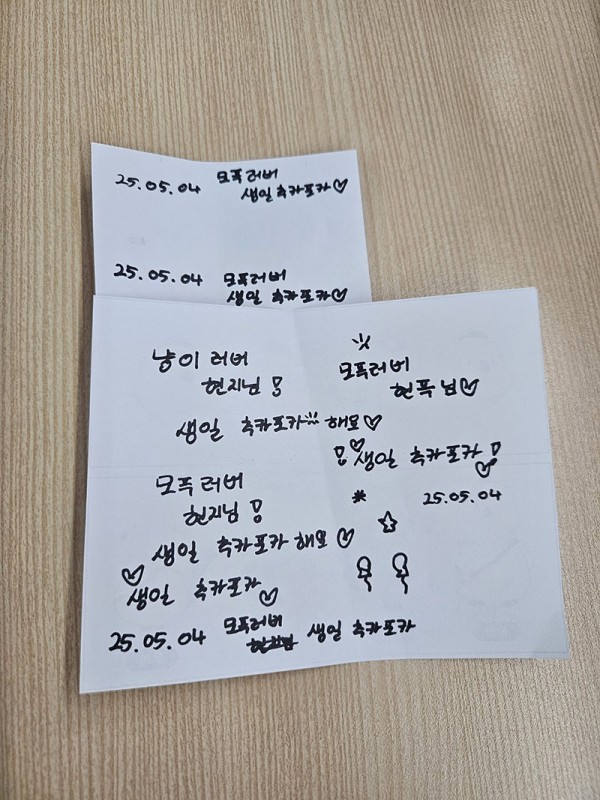 25.05.04 모폭러버
생일축카포카♡
25.05.04 모폭러버
생일 축카포카♡
냥이 러버
현지님!
생일 축카포카 해요♡
모폭러버
현지님!
생일 축카포카해요♡
♡생일 축카포카♡
25.05.04 모폭러버
생일 축카포카
모폭러버
현폭님♡
!♡생일 축카포카!♡
25.05.04